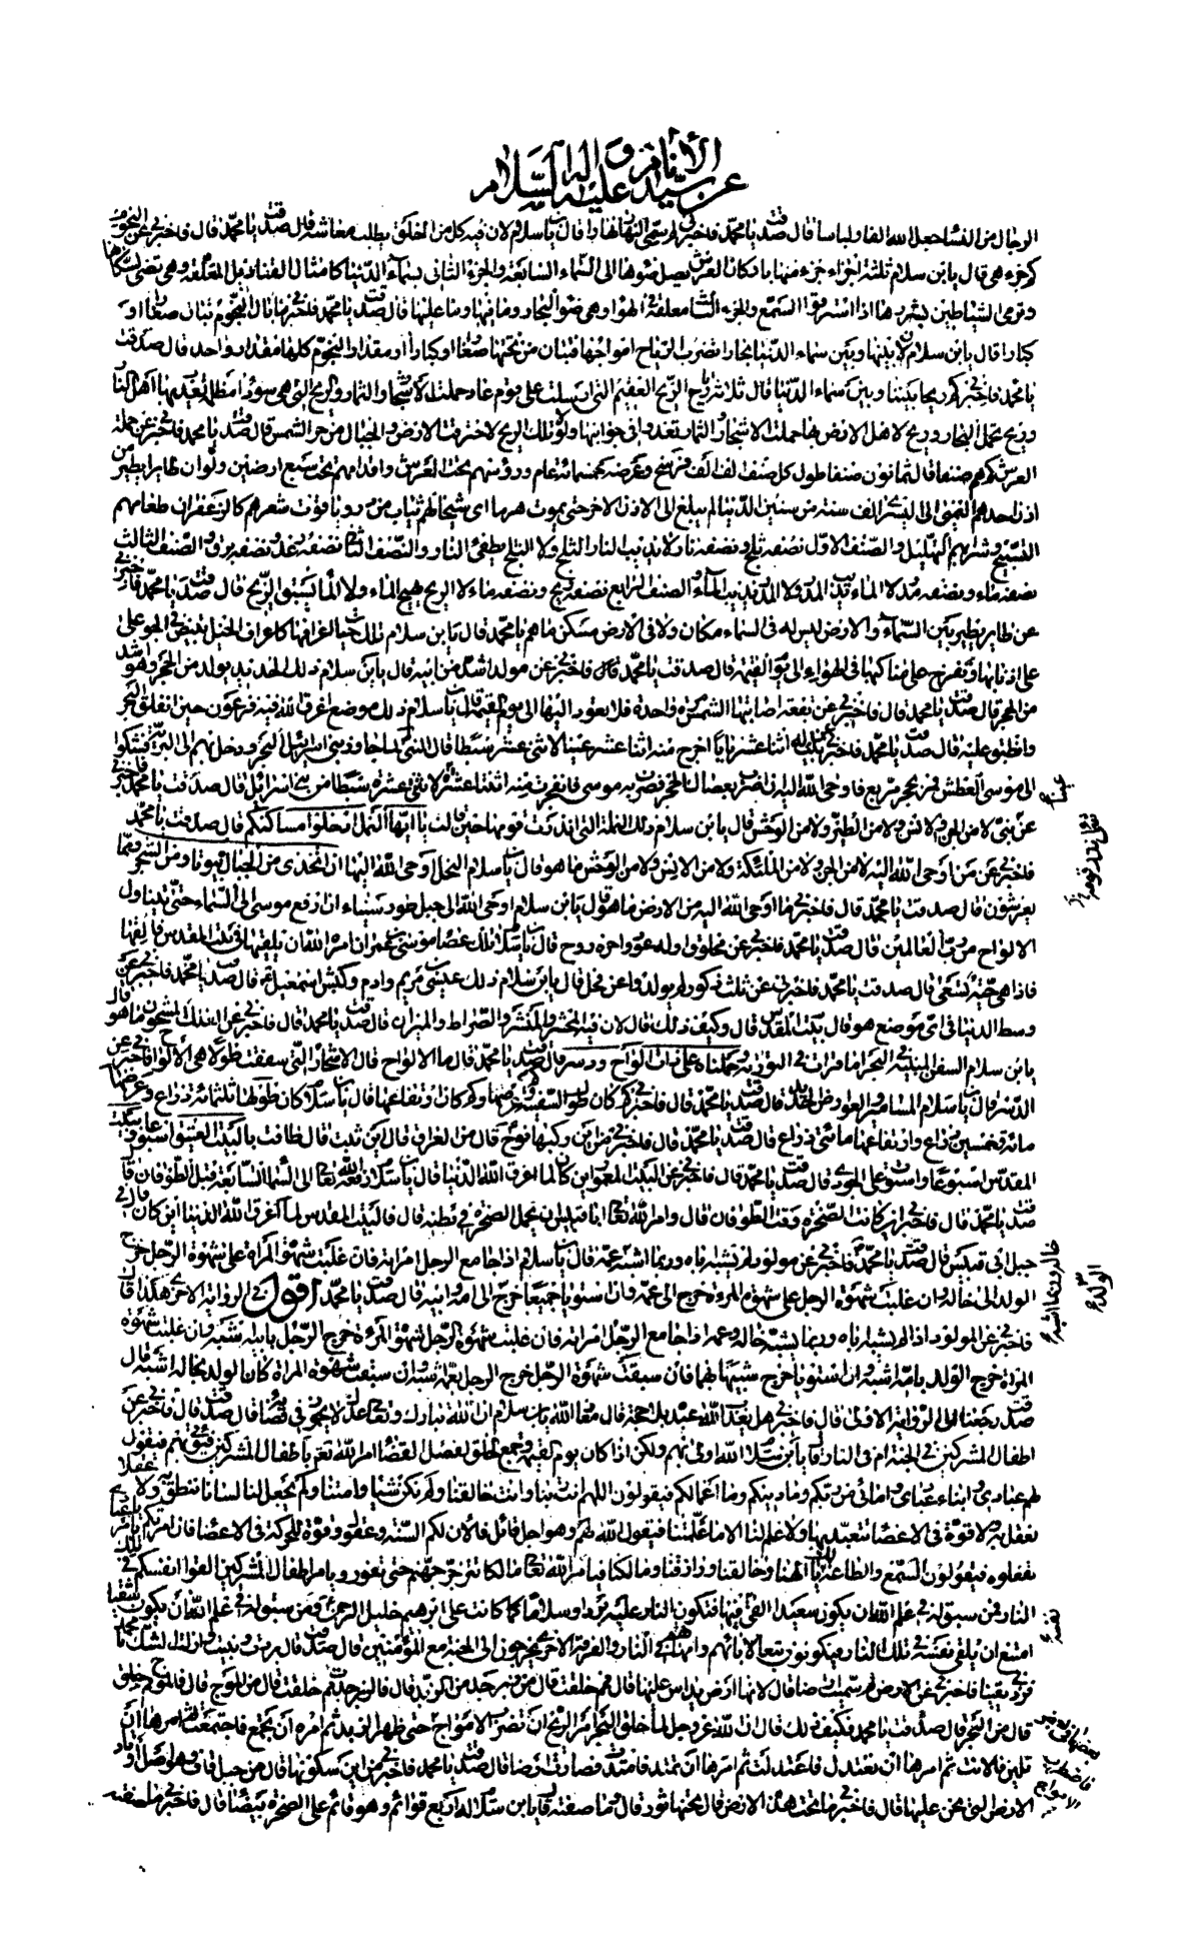 الأنام و اله
عن سيد عليه السلام
الرجال من النساء جعل الله الفا ولباسا قال صدقت يا محمد فاخبرني لم سمي النهار نهارا قال يا بن سلام لان فيه كل من الخلق يطلب معاشه قال صدقت يا محمد قال فاخبرني عن النجوم
كم جزء هي قال يا بن سلام ثلثة اجزاء جزء منها باركان العرش يصل ضوءها الى السماء السابعة والجزء الثاني بسماء الدنيا كامثال القناديل المعلقة وهي تضيء لسكانها
وترمي الشياطين بشررها اذا استرقوا السمع والجزء الثالث معلقة في الهواء وهي ضوء البحار وما فيها وما عليها قال صدقت يا محمد فاخبرني ما بال النجوم تبان صغارا و
كبارا قال يا بن سلام لان بينها وبين سماء الدنيا بحارا تضرب الرياح امواجها فتبان من تحتها صغارا وكبارا ومقدار النجوم كلها مقدار واحد قال صدقت
يا محمد فاخبرني كم ريحا بيننا وبين سماء الدنيا قال ثلاث رياح الريح العقيم التي ارسلت على قوم عاد حملت الاشجار والثمار والريح التي هي سوداء مظلمة يعذب بها اهل النار
وريح تحمل البحار وريح لاهل الارض بها حملت الاشجار والثمار تغدو في جوابها ولولا تلك الريح لاحترقت الارض والجبال من حر الشمس قال صدقت يا محمد فاخبرني عن حملة
العرش كم هم صنفا قال ثمانون صنفا طول كل صنف الف الف فرسخ وعرضه خمسمائة عام ورؤوسهم تحت العرش واقدامهم تحت سبع ارضين ولو ان طايرا يطير من
اذن احدهم اليمنى الى اليسرى الف سنة من سنين الدنيا لم يبلغ الى الاذن الاخرى حتى يموت هرما اي شيخا لهم ثياب من در وياقوت شعرهم كالزعفران طعامهم
التسبيح وشرابهم التهليل والصنف الاول نصفه ثلج ونصفه نار لا يذيب النار الثلج ولا الثلج يطفئ النار والنصف الثاني نصفه رعد ونصفه برق والصنف الثالث
نصفه ماء ونصفه مدر لا الماء يذيب المدر ولا المدر يذيب الماء والصنف الرابع نصفه ريح ونصفه ماء لا الريح يهيج الماء ولا الماء يسبق الريح قال صدقت يا محمد فاخبرني
عن طاير يطير بين السماء والارض ليس له في السماء مكان ولا في الارض مسكن ما هم يا محمد قال يا بن سلام تلك حيات اعرافها كاعراف الخيل تبيض في الجو على
على اذنابها وتفرخ على مناكبها في الهواء الى يوم القيمة قال صدقت يا محمد قال فاخبرني عن مولد اشد من ابيه قال يا بن سلام ذلك الحديد يولد من الحجر وهو اشد
من الحجر قال صدقت يا محمد قال فاخبرني عن بقعة اصابتها الشمس مرة واحدة فلا تعود اليها الى يوم القيمة قال يا بن سلام ذلك موضع اغرق الله فيه فرعون حين انفلق البحر
وانطبق عليه قال صدقت يا محمد فاخبرني عن بيت له اثنا عشر بابا اخرج منه اثنا عشر عينا لاثني عشر سبطا قال النبي لما جاوز موسى ببني اسرائيل البحر ودخل بهم الى البرية شكوا
الى موسى العطش فمر بحجر مربع فاوحى الله اليه ان اضرب بعصاك الحجر فضرب به موسى فانفجرت منه اثنتا عشرة لاثنتي عشرة سبطا من بني اسرائيل قال صدقت يا محمد فاخبرني
عن شيء لا من الجن ولا من الانس ولا من الطير ولا من الوحش قال يا بن سلام ذلك النملة التي انذرت قومها حين قالت يا ايها النمل ادخلوا مساكنكم قال صدقت يا محمد
فاخبرني عن من اوحى الله اليه لا من الجن ولا من الملئكة ولا من الانس ولا من الوحش ما هو قال يا بن سلام النحل اوحى الله اليها ان اتخذي من الجبال بيوتا ومن الشجر ومما
يعرشون قال صدقت يا محمد قال فاخبرني ما اوحى الله اليه من الارض ما هو قال يا بن سلام اوحى الله الى جبل طور سيناء ان ارفع موسى الى السماء حتى يتناول
الالواح من رب العالمين قال صدقت يا محمد فاخبرني عن مخلوق اوله عود واخره روح قال يا بن سلام تلك عصا موسى بن عمران امره الله ان يلقيها في بيت المقدس فالقيها
فاذا هي حية تسعى قال صدقت يا محمد فاخبرني عن ثلث ذكور لم يولدوا عن فحل قال يا بن سلام ذلك عيسى بن مريم وادم وكبش اسمعيل قال صدقت يا محمد فاخبرني عن
وسط الدنيا في اي موضع هو قال بيت المقدس قال وكيف ذلك قال لان فيه المحشر والمنشر والصراط والميزان قال صدقت يا محمد قال فاخبرني عن الفلك المشحون ما هو قال
يا بن سلام السفن المبنية في البحر اما قرات في التورية وحملناه على ذات الواح ودسر قال صدقت يا محمد قال ما الالواح قال الاشجار التي سفقت طولا هي الالواح فاخبرني عن
الدسر قال يا بن سلام المسامير والعوارض الحديد قال صدقت يا محمد قال فاخبرني كم كان طول السفينة وعرضها وكم كان ارتفاعها قال يا بن سلام كان طولها ثلثمائة ذراع وعرضها
مائة وخمسين ذراع وارتفاعها مائتي ذراع قال صدقت يا محمد قال فاخبرني من اين ركبها نوح قال من العراق قال اين بلغت قال طافت بالبيت العتيق اسبوعا وبيت
المقدس اسبوعا واستوت على الجودي قال صدقت يا محمد قال فاخبرني عن البيت المعمور اين كان لما اغرق الله الدنيا قال يا بن سلام رفعه الله تعالى الى السماء السابعة قبل الطوفان قال
صدقت يا محمد قال فاخبرني اين كانت الصخرة وقت الطوفان قال وامر الله تعالى ابا قبيس ان يحمل الصخرة في بطنه قال فالبيت المقدس لما اغرق الله الدنيا اين كان قال في
جبل ابي قبيس قال صدقت يا محمد فاخبرني عن مولود لم يشبه اباه وربما اشبه عمه قال يا بن سلام اذا جامع الرجل امراته فان غلبت شهوة المراة على شهوة الرجل خرج
الولد الى خاله وان غلبت شهوة الرجل على شهوة المرءة خرج الى عمه وان استويا جميعا خرج الى امه وابيه قال صدقت يا محمد اقول في الرواية الاخرى هكذا قال
فاخبرني عن المولود اذا لم يشبه اباه وربما يشبه خاله وعمه اذا جامع الرجل امراته فان غلبت شهوة الرجل لشهوة المرءة خرج الرجل بابيه شبه وان غلبت شهوة
المرءة خرج الولد بامه اشبه وان استويا خرج شبيها بهما فان سبقت شهوة الرجل خرج الرجل بعمه شبه وان سبقت شهوة المراة كان الولد بخاله اشبه قال
صدقت رجعنا الى الرواية الاولى قال فاخبرني هل يعذب الله عبيده بلا حجة قال معاذ الله يا بن سلام ان الله تبارك وتعالى عدل لا يجور في قضائه قال صدقت قال فاخبرني عن
اطفال المشركين في الجنة ام في النار قال يا بن سلام الله اولى بهم ولكن اذا كان يوم القيمة وجمع الخلق لفصل القضاء امر الله تعالى باطفال المشركين فيؤتى بهم فيقول
لهم عبادي وابناء عبادي وامائي من ربكم وما دينكم وما اعمالكم فيقولون اللهم انت ربنا وانت خالقنا ولم نكن شيئا وامتنا ولم تجعل لنا لسانا ننطق به ولا عقلا
نعقل به ولا قوة في الاعضاء نتعبد بها ولا علم لنا الا ما علمتنا فيقول الله لهم وهو اجل قائل فالان لكم السنة وعقل وقوة للحركة في الاعضاء فان امرتكم
تفعلوه فيقولون السمع والطاعة لك يا الهنا وخالقنا ورازقنا ومالكنا فيامر الله تعالى مالكا تزجر جهنم حتى تفور ويامر اطفال المشركين القوا انفسكم في تلك
النار فمن سبق له في علم الله ان يكون سعيدا القى نفسه فيها فتكون النار عليه بردا وسلاما كما كانت على ابرهيم خليل الرحمن ومن سبق له في علم الله ان يكون شقيا
امتنع ان يلقي نفسه في تلك النار فيكونون تبعا لابائهم وامهاتهم في النار والفرقة الاخرى يخرجون الى الجنة مع المؤمنين قال صدقت قال بررت وبينت وازلت الشك يا محمد
فزدني يقينا فاخبرني عن الارض لم سميت ارضا قال لانها ارض يداس عليها قال مم خلقت قال من زبرجد من الزبد قال فالزبرجد مم خلقت قال من الموج قال فالموج مم خلق
قال من البحر قال صدقت يا محمد فكيف ذلك قال ان الله عز وجل لما خلق البحر امر الريح ان تضرب الامواج حتى ظهر الزبد ثم امره ان يجتمع فاجتمعت ثم امرها ان
تلين فلانت ثم امرها ان تعتدل فاعتدلت ثم امرها ان تمتد فامتدت فصارت ارضا قال صدقت يا محمد فاخبرني من اين سكونها قال من جبل قاف وهو اصل اوتاد
الارض التي نحن عليها قال فاخبرني ما تحت هذه الارض قال تحتها ثور قال وما صفته قال يا بن سلام له اربع قوائم وهو قائم على الصخرة بيضاء قال فاخبرني ما صفته
عينا
خاله وربما اشبه
الولد
نفسه